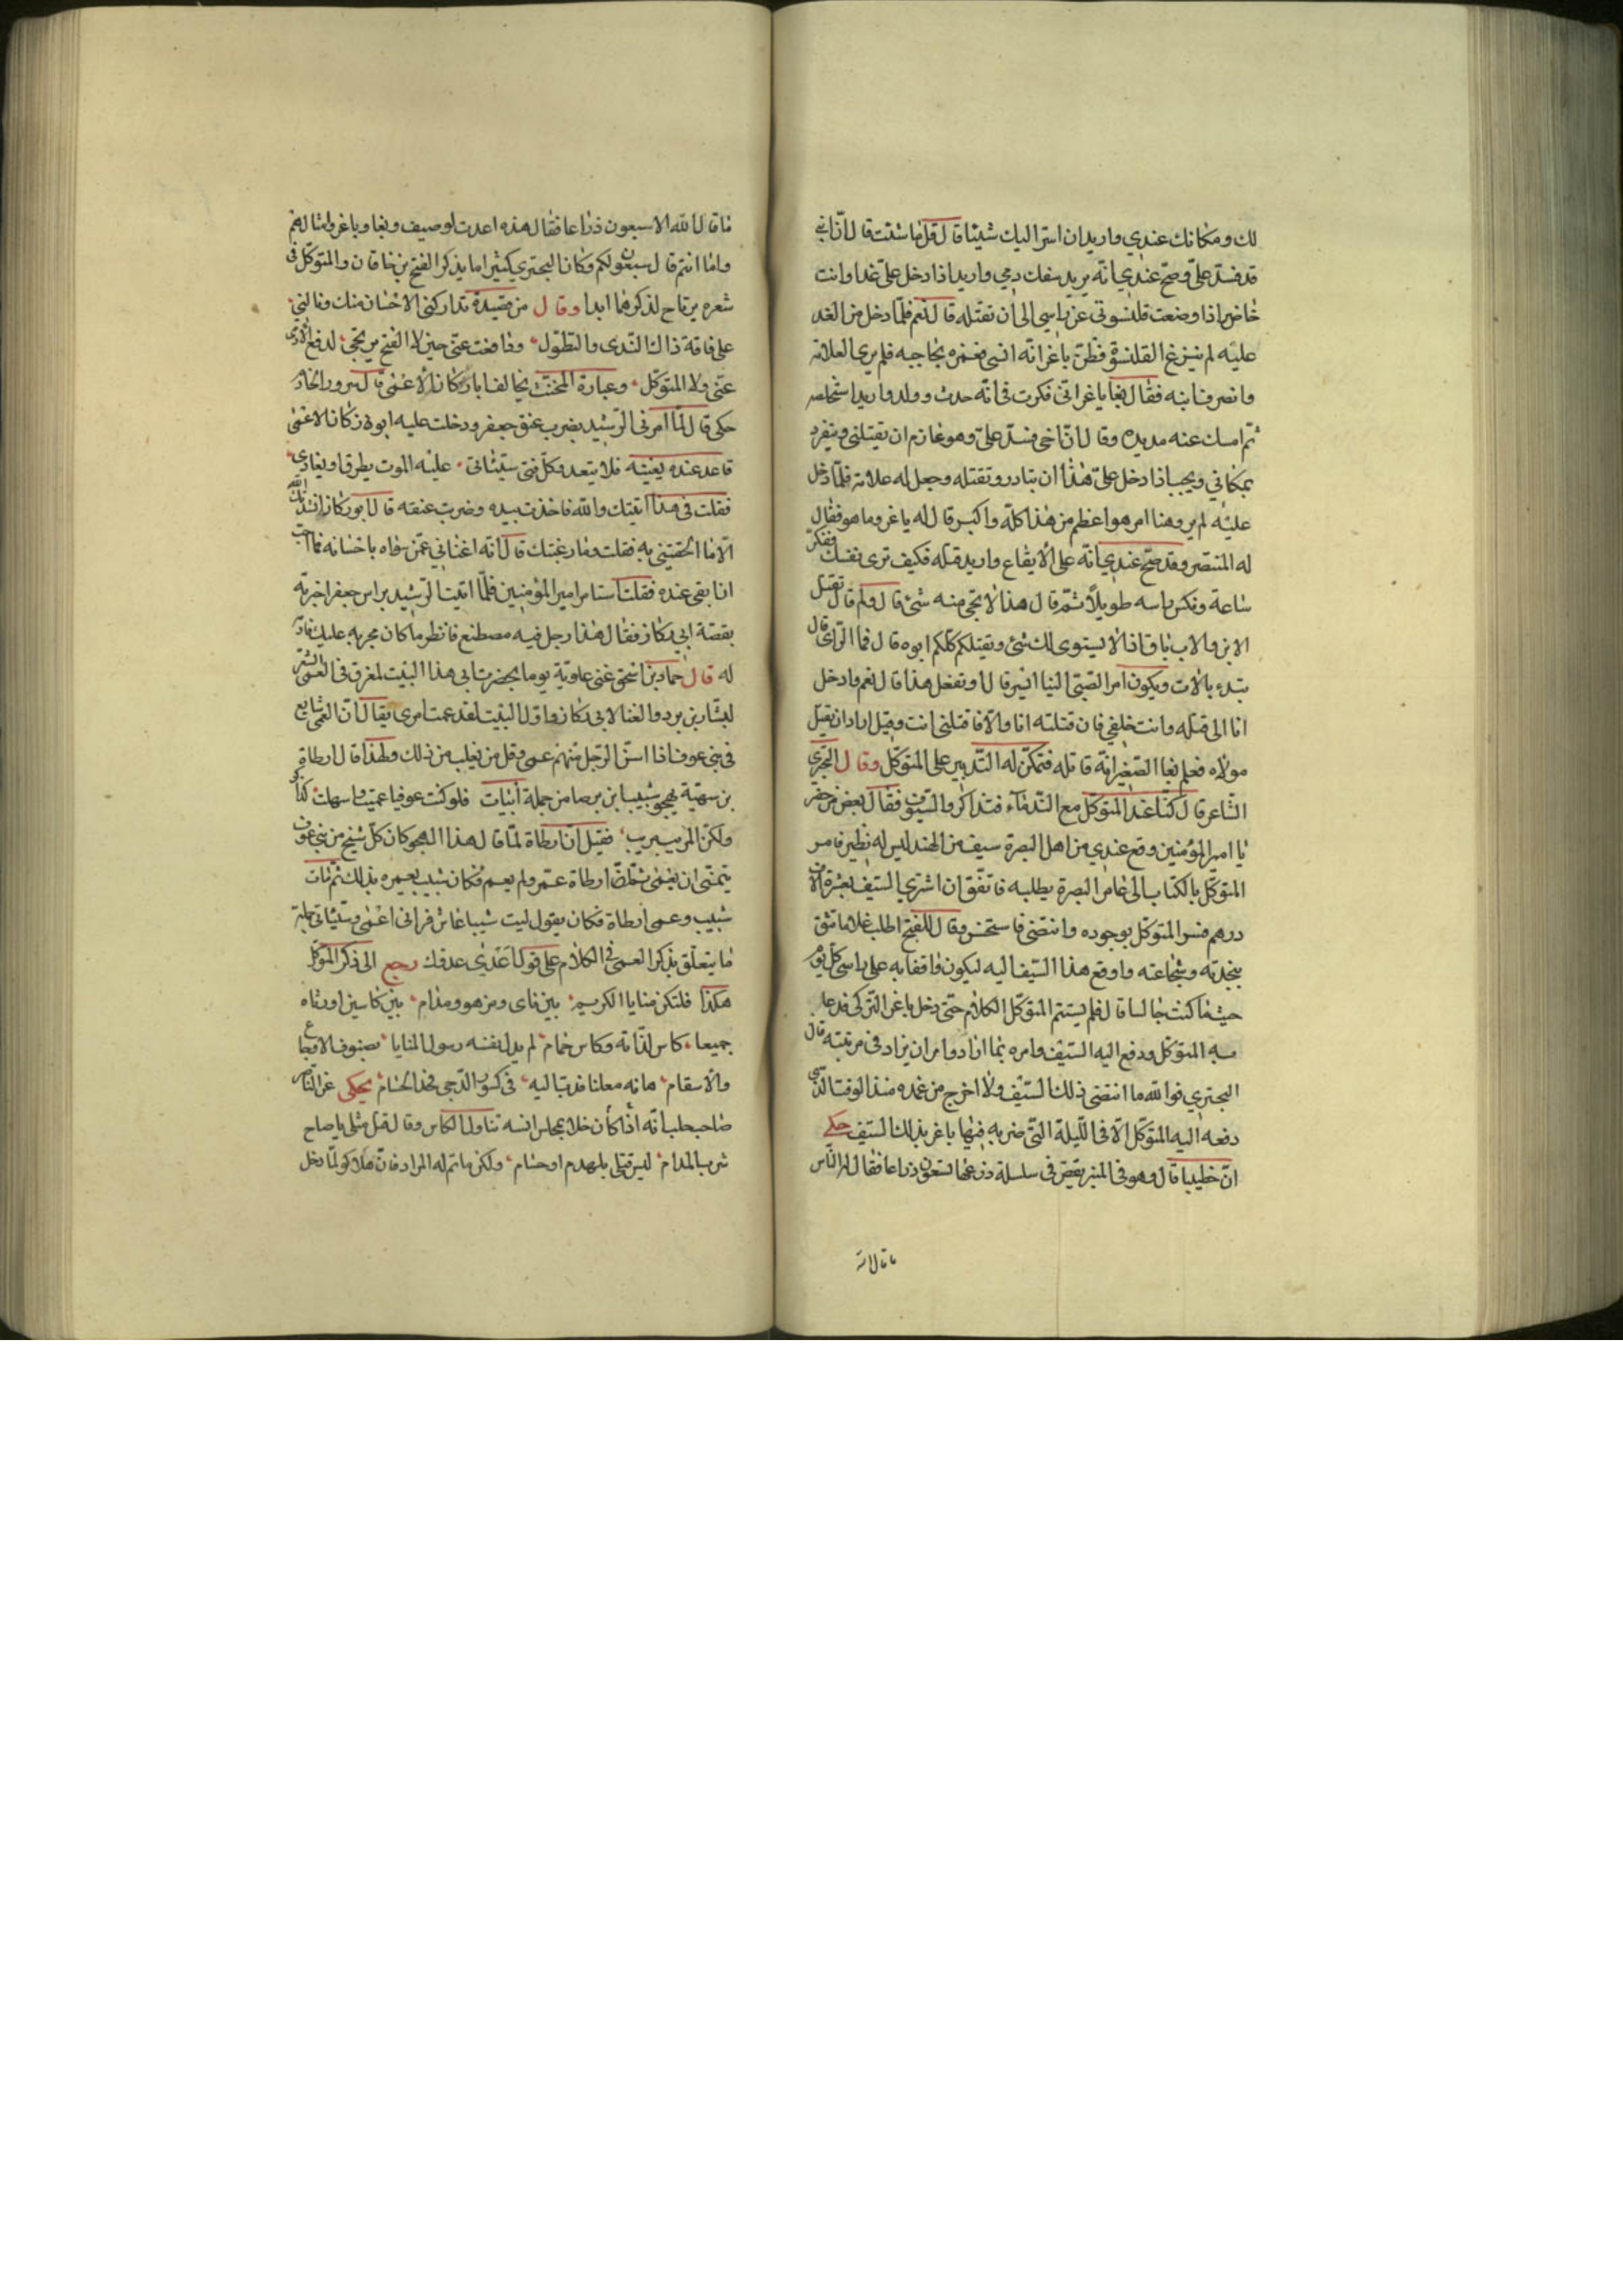 لك ومكانك عندي واريد ان اسر اليك شيئا قال قل ما شئت قال ان ابني
قد فسد علي وصح عندي انه يريد سفك دمي واريد اذا دخل علي غدا وانت
حاضر اذا وضعت قلنسوتي عن راسي الى ان تقتله قال نعم فلما دخل من الغد
عليه لم ينزع القلنسوة فظن باغر انه انسي فغمزه بحاجبه فلم ير العلامة
وانصرف ابنه فقال بغا يا باغر اني فكرت في انه حدث وولد واريد استخلصه
ثم امسك عنه مديده وقال ان اخي فسد علي وهو عازم ان يقتلني وينفرد
بمكاني ويجب اذا دخل علي هذا ان تبادر وتقتله وجعل له علامة فلما دخل
عليه لم ير وهنا امر هو اعظم من هذا كله واكبر قال له باغر وما هو فقال
له المنتصر وقد صح عندي انه على الايقاع واريد قتله فكيف ترى نفسك ففكر
ساعة ونكس راسه طويلا ثم قال هذا لا يجي منه شئ قال ولم قال تقتل
الابن والاب باق اذا لا يستوى لك شئ ويقتلكم كلكم ابوه قال فما الراى قال
نبدء بالاب ويكون امر الصبي الينا ايسر قال او تفعل هذا قال نعم وادخل
انا الى قتله وانت خلفي فان قتلته انا والا فاقتلني انت وقيل اراد ان يقتل
مولاه فعلم بغا الصغير انه قاتله فتمكن له التدبير على المتوكل وقال البحتري
الشاعر قال كنا عند المتوكل مع الندماء فتذاكروا السيوف فقال بعض من حضر
يا امير المؤمنين وقع عندي من اهل البصرة سيف من الهند ليس له نظير فامر
المتوكل بالكتاب الى عامر البصرة يطلبه فاتفق ان اشتري السيف بعشرة الاف
درهم فسر المتوكل بوجوده وانتضى فاستحسن وقال للفتح اطلب غلاما تثق
بنجدته وشجاعته وادفع هذا السيف اليه ليكون واقفا به على راسي كل يوم
حيث ما كنت جالسا قال فلم يستتم المتوكل الكلام حتى دخل باغر التركي فدعا
به المتوكل ودفع اليه السيف وامره بما اراد وامر ان يزاد في مرتبته قال
البحتري فوالله ما انتضى ذلك السيف ولا اخرج من غمده منذ الوقت الذي
دفعه اليه المتوكل الا في الليلة التي ضربه فيها باغر بذلك السيف حكي
ان خطيبا قال وهو في المنبر يقص في سلسلة ذرعها تسعون ذراعا فقال له الناس
ما قال الله
ما قال الله الا سبعون ذراعا فقال هذه اعدت لوصيف وبغا وباغر وامثالهم
واما انتم فال سبعون لكم وكان البحتري كثيرا ما يذكر الفتح بن خاقان والمتوكل في
شعره يرتاح لذكرهما ابدا وقال من قصيدة تداركني الاحسان منك ونالني
على فاقة ذاك الندى والتطول ودافعت عني حين لا الفتح يرتجى لدفع الاذى
عني ولا المتوكل وعبارة المخنث يخالف ابا زكار الاعمى قال مسرور الخادم
حكى قال لما امرني الرشيد بضرب عنق جعفر ودخلت عليه ابو زكار الاعمى
قاعد عنده يغنيه فلا يتعد وكل فتى سيئاتي عليه الموت يطرق او يغادى
فقلت في هذا اتيتك والله فاخذت بيده وضربت عنقه قال ابو زكار انشدك الله
الا ما الحقتني به فقلت وما رغبتك قال انه اغناني عمن سواه باحسانه فما احب
ان ابقى عنده فقلت استامر امير المؤمنين فلما اتيت الرشيد براس جعفر اخبرته
بقصة ابي زكار فقال هذا رجل فيه مصطنع فانظر ما كان مجريه عليك فادر
له قال حماد بن اسحق غنى علوية يوما بحضرت ابي هذا البيت
لبشار بن برد والغنا لابي زكار واول البيت لقد عمت امري يقال ان العمى شايع
في بني عوف اذا اسن الرجل منهم عمى وقل من يفلت من ذلك ولهذا قال ارطاة
بن سهية يهجو شبيب ابن برصا من جملة ابيات فلو كنت عوفيا عميت واسهلت كداك
ولكن المريب يريب فقيل ان ارطاة لما قال هذا الهجو كان كل شيخ من بني عوف
يتمنى ان يعمى ثم ان ارطاة عمر ولم يعم فكان شبيب يعيره بذلك ثم مات
شبيب وعمى ارطاة فكان يقول ليت شبيبا عاش فراني اعمى
ما يتعلق بذكر العمى في الكلام على قول عدى عدوك رجع الى ذكر المتوكل
هكذا فلتكن منايا الكرام بين ناى ومزهر ومدام بين كاسين اورثاه
جميعا كاس لذاته وكاس حمام لم يذل نفسه رسول المنايا بصنوف الاوجاع
والاسقام هابه معلنا فدب اليه في كسوب الدجى بحد الحسام يحكى عن الناصر
صاحب حلب انه اذا كان خلا بمجلس انسه تناول الكاس وقال قتل مثلي يا صاح
شرب المدام ليس قتلي بلهذم او حسام ولكن ما تم له المراد فان هلاكو لما دخل